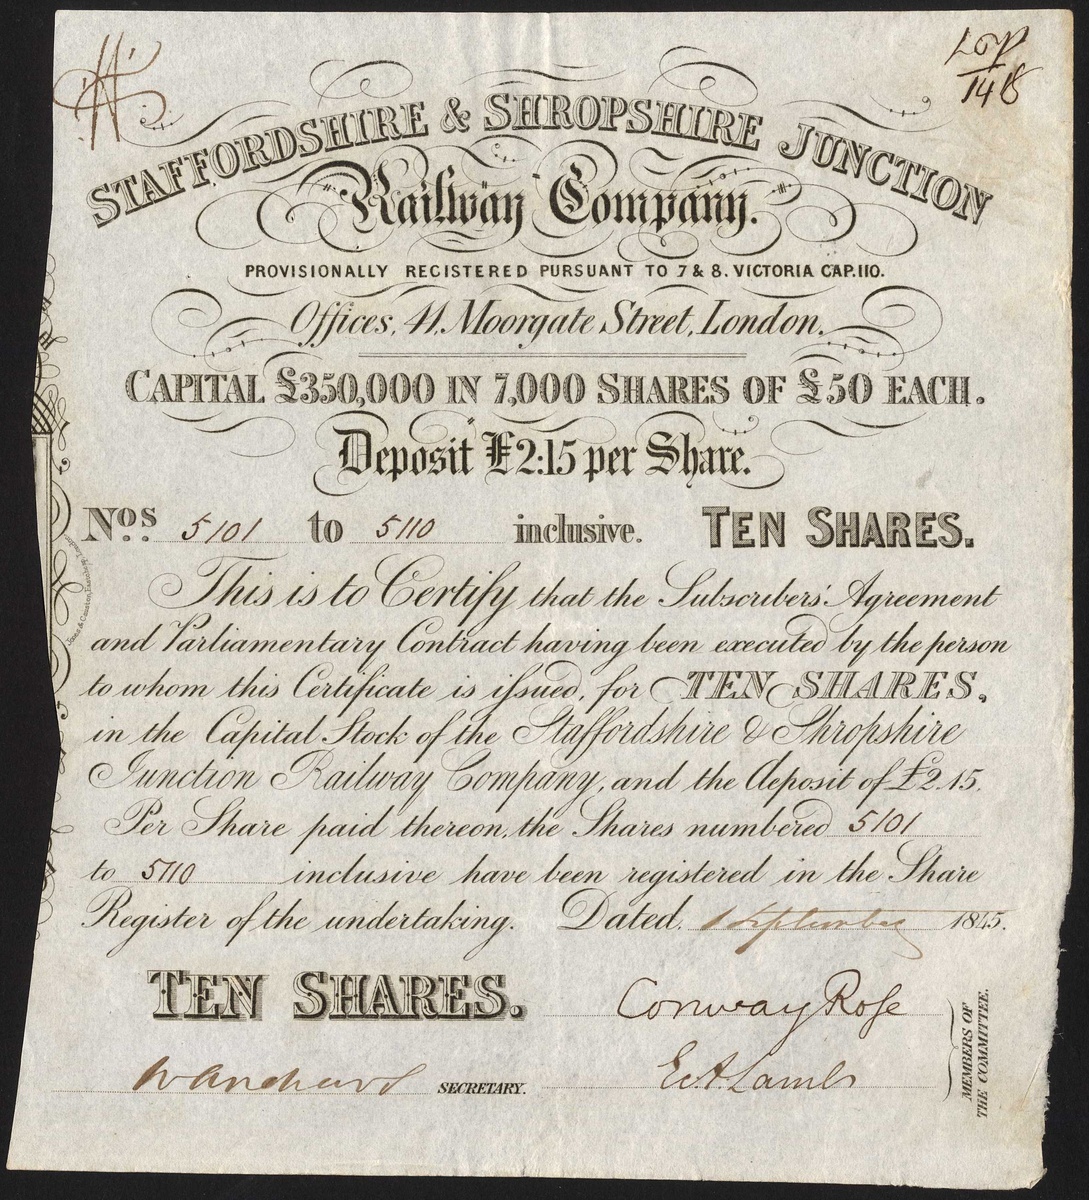 STAFFORDSHIRE & SHROPSHIRE JUNCTION
Railway Company.
PROVISIONALLY REGISTERED PURSUANT TO 7 & 8. VICTORIA CAP. 110.
Offices, 41, Moorgate Street, London.
CAPITAL £350,000 IN 7,000 SHARES OF £50 EACH.
Deposit £2:15 per Share.
Nos. 5101 to 5110 inclusive. TEN SHARES.
This is to Certify that the Subscribers' Agreement
and Parliamentary Contract having been executed by the person
to whom this Certificate is ifsued, for TEN SHARES,
in the Capital Stock of the Staffordshire & Shropshire
Junction Railway Company, and the deposit of £2.15.
Per Share paid thereon, the Shares numbered 5101
to 5110 inclusive have been registered in the Share
Register of the undertaking. Dated. 1 September 1845.
TEN SHARES.
Conway Rose
E A Lamb
SECRETARY.
MEMBERS OF
THE COMMITTEE.